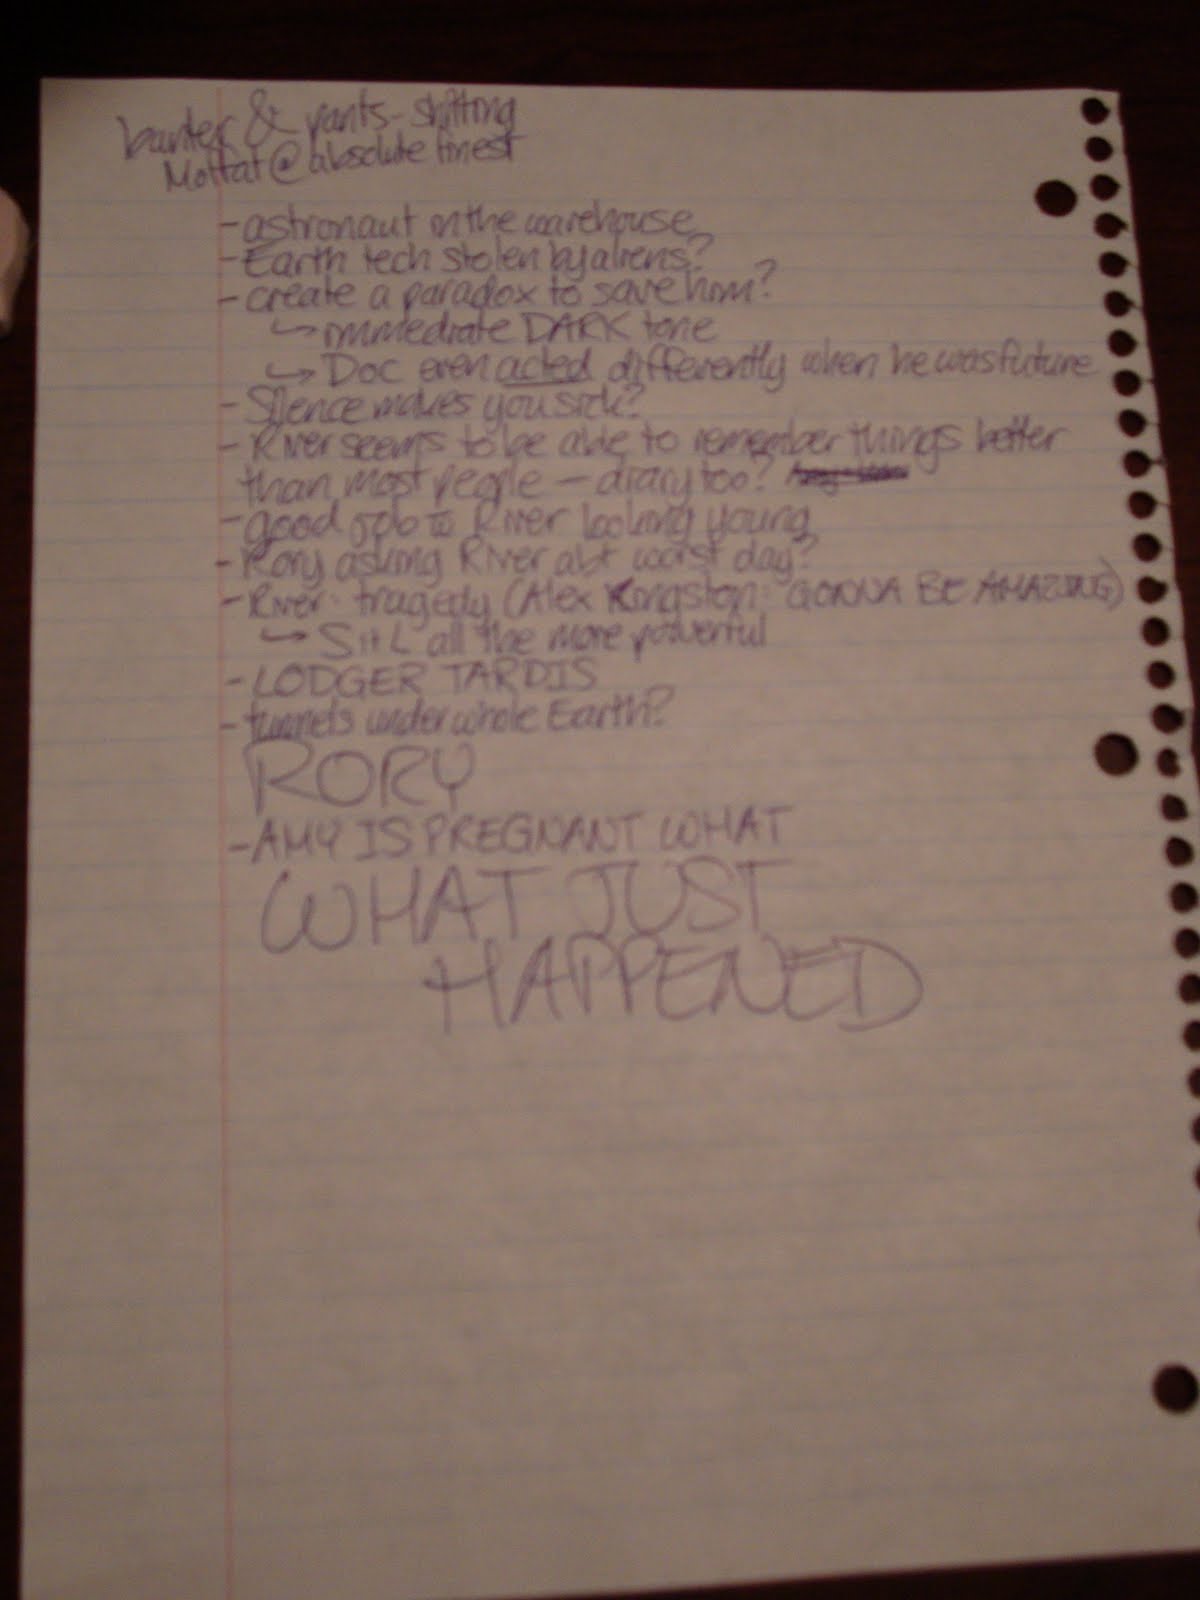 banter & pants-shitting
Moffat @ absolute finest
- astronaut in the warehouse
- Earth tech stolen by aliens?
- create a paradox to save him?
↳ immediate DARK tone
↳ Doc even acted differently when he was future
- Silence makes you sick?
- River seems to be able to remember things better
than most people — diary too?
- good job to River looking young
- Rory asking River abt worst day?
- River: tragedy (Alex Kingston: GONNA BE AMAZING)
↳ SitL all the more powerful
- LODGER TARDIS
- tunnels under whole Earth?
RORY
- AMY IS PREGNANT WHAT
WHAT JUST
HAPPENED